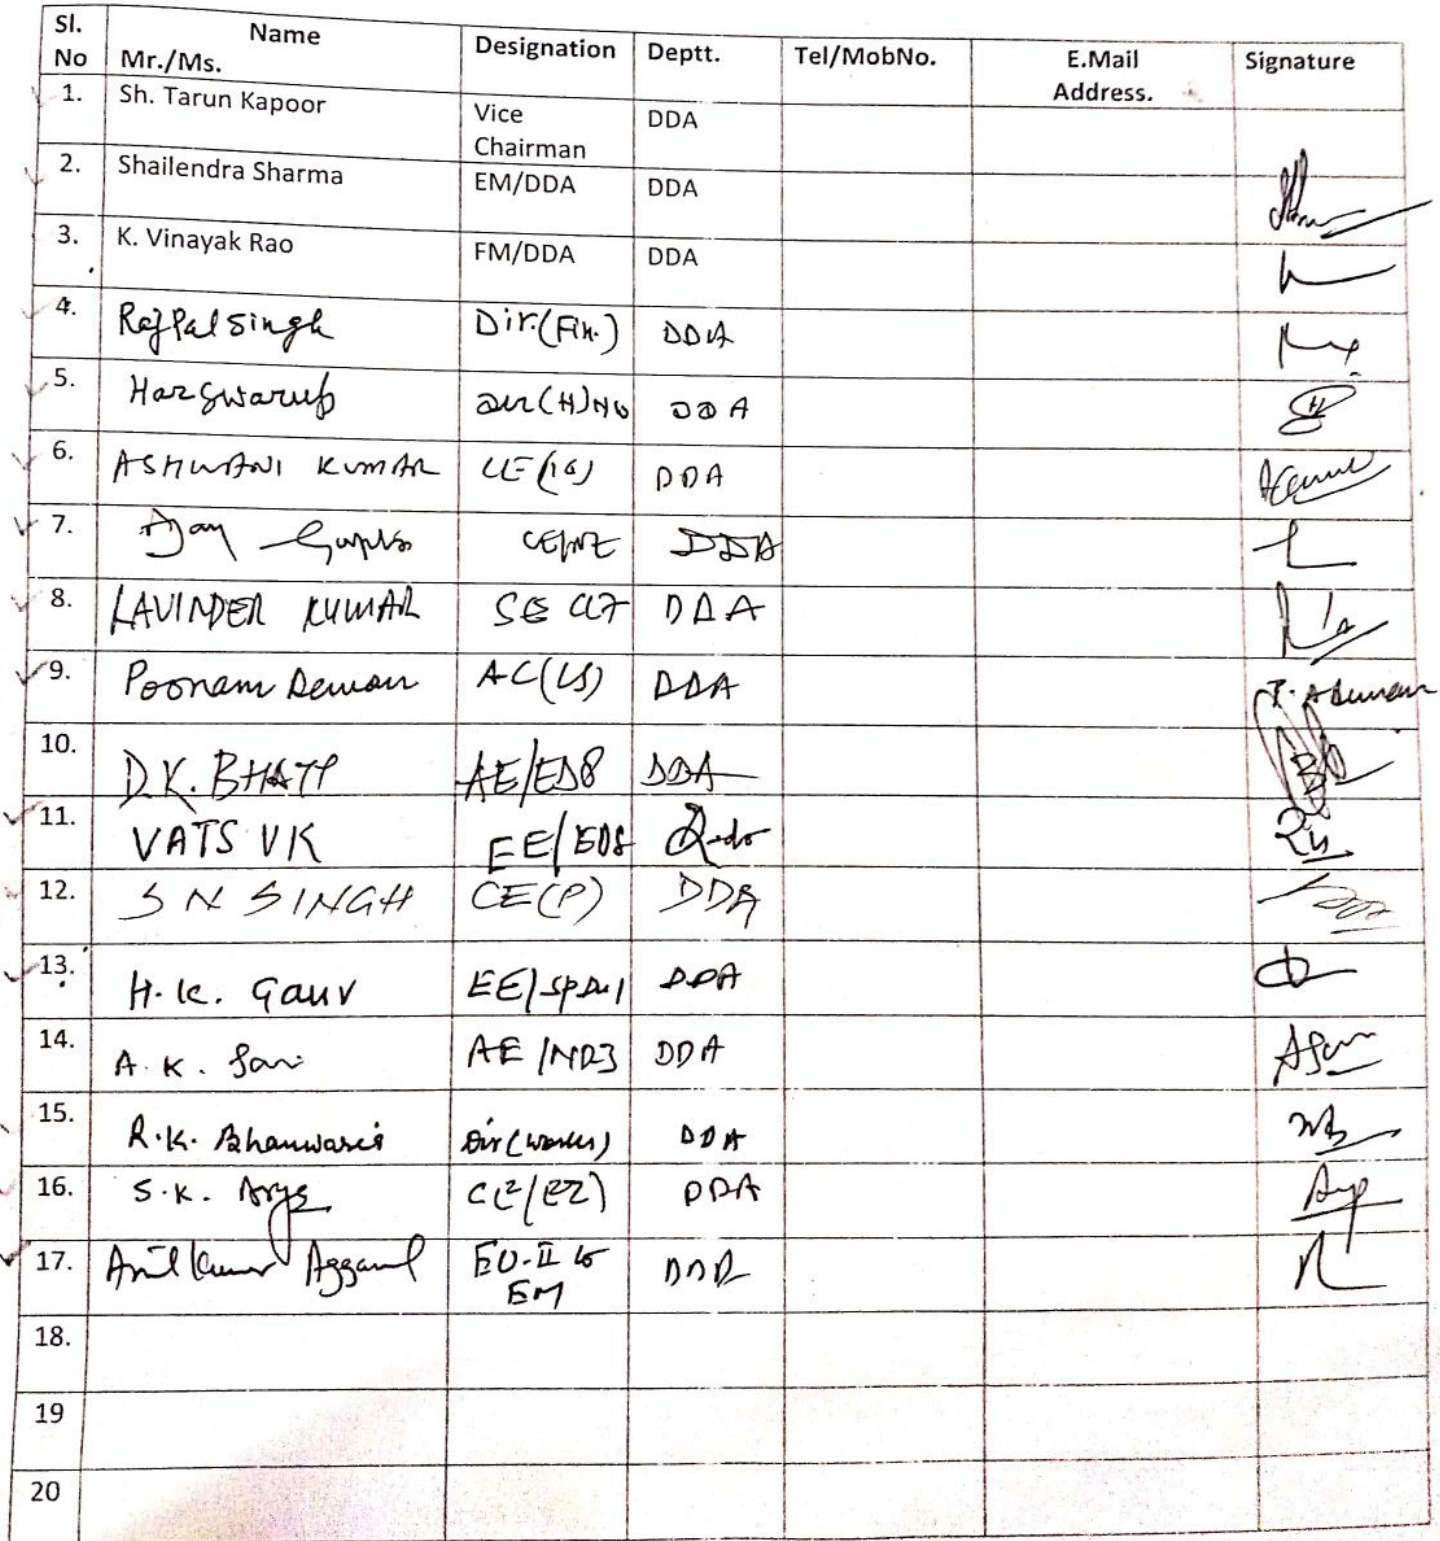 Sl. No Name Mr./Ms. Designation Deptt. Tel/MobNo. E.Mail Address. Signature
1. Sh. Tarun Kapoor Vice Chairman DDA
2. Shailendra Sharma EM/DDA DDA
3. K. Vinayak Rao FM/DDA DDA
4. RajPal Singh Dir.(Fin.) DDA
5. Har Swarup Dir(H) DDA
6. ASHWANI KUMAR DDA
7. Ajay Gupta CE/NZ DDA
8. LAVINDER KUMAR SE DDA
9. Poonam Dewan AC(LS) DDA
10. D.K. BHATT AE/ED8 DDA
11. VATS VK EE/ED8
12. S N SINGH CE(P) DDA
13. H.K. Gaur EE/ DDA
14. A.K. AE/ND3 DDA
15. R.K. Bhanwaria Dir(works) DDA
16. S.K. Arya CE/EZ) DDA
17. Anil Kumar Aggarwal EO-II to EM DDA
18.
19
20